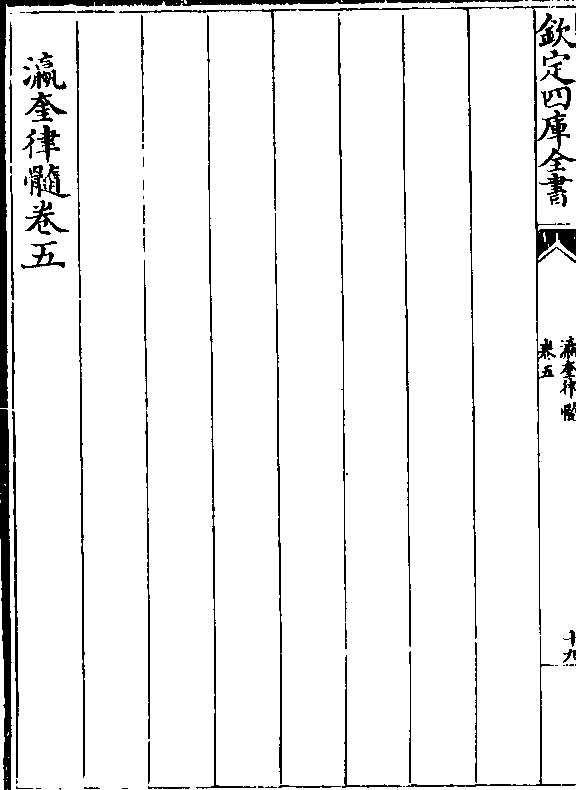 欽定四庫全書
瀛奎律髓
卷五
十九
瀛奎律髓卷五